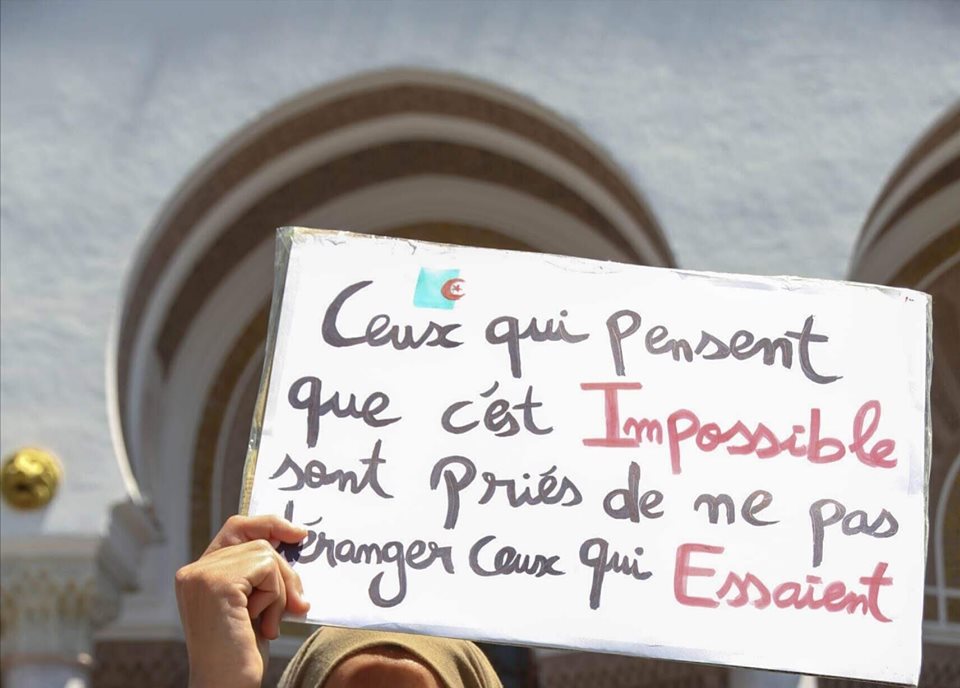 Ceux qui pensent
que c'est Impossible
sont priés de ne pas
déranger ceux qui Essaient